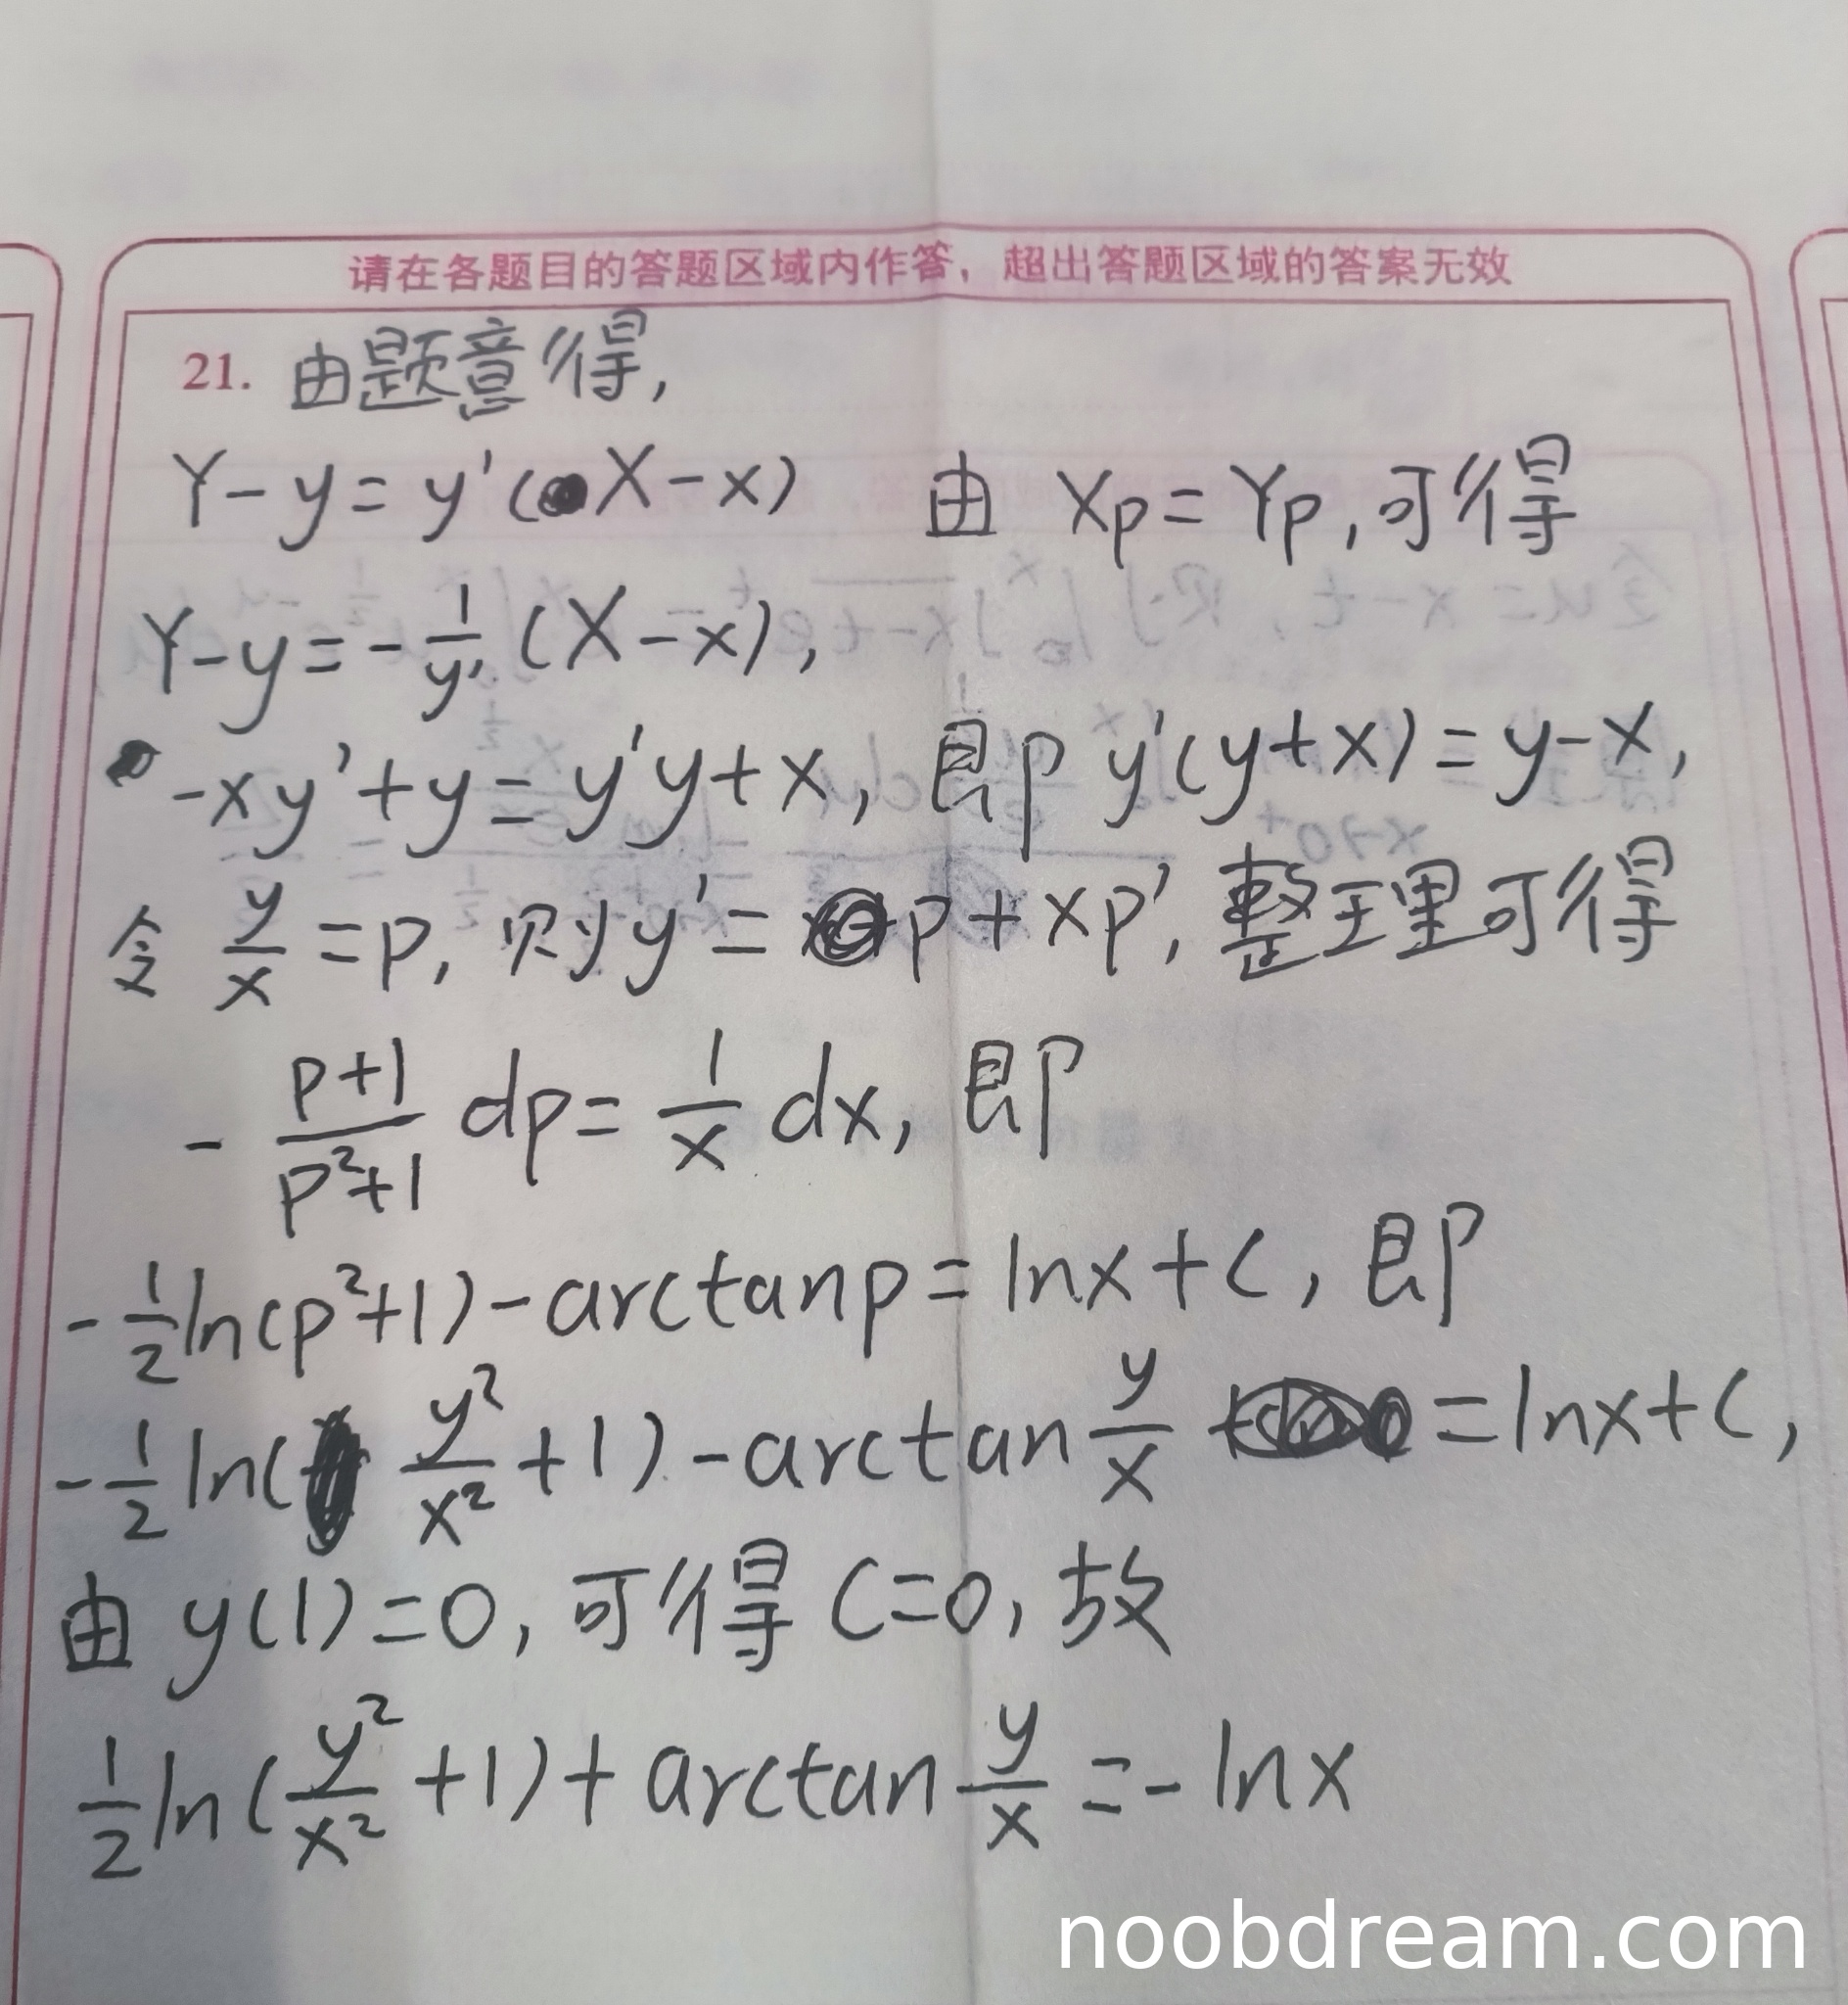 请在各题目的答题区域内作答，超出答题区域的答案无效
21. 由题意得,
Y-y=y'(X-x) 由 Xp=Yp,可得
Y-y=-\frac{1}{y'}(X-x),
-xy'+y=y'y+x, 即 y'(y+x)=y-x,
令 \frac{y}{x}=p, 则y'=p+xp', 整理可得
-\frac{p+1}{p²+1}dp=\frac{1}{x}dx, 即
-\frac{1}{2}ln(p²+1)-arctanp=lnx+C, 即
-\frac{1}{2}ln(\frac{y²}{x²}+1)-arctan\frac{y}{x}=lnx+C,
由 y(1)=0, 可得 C=0, 故
\frac{1}{2}ln(\frac{y²}{x²}+1)+arctan\frac{y}{x}=-lnx
noobdream.com